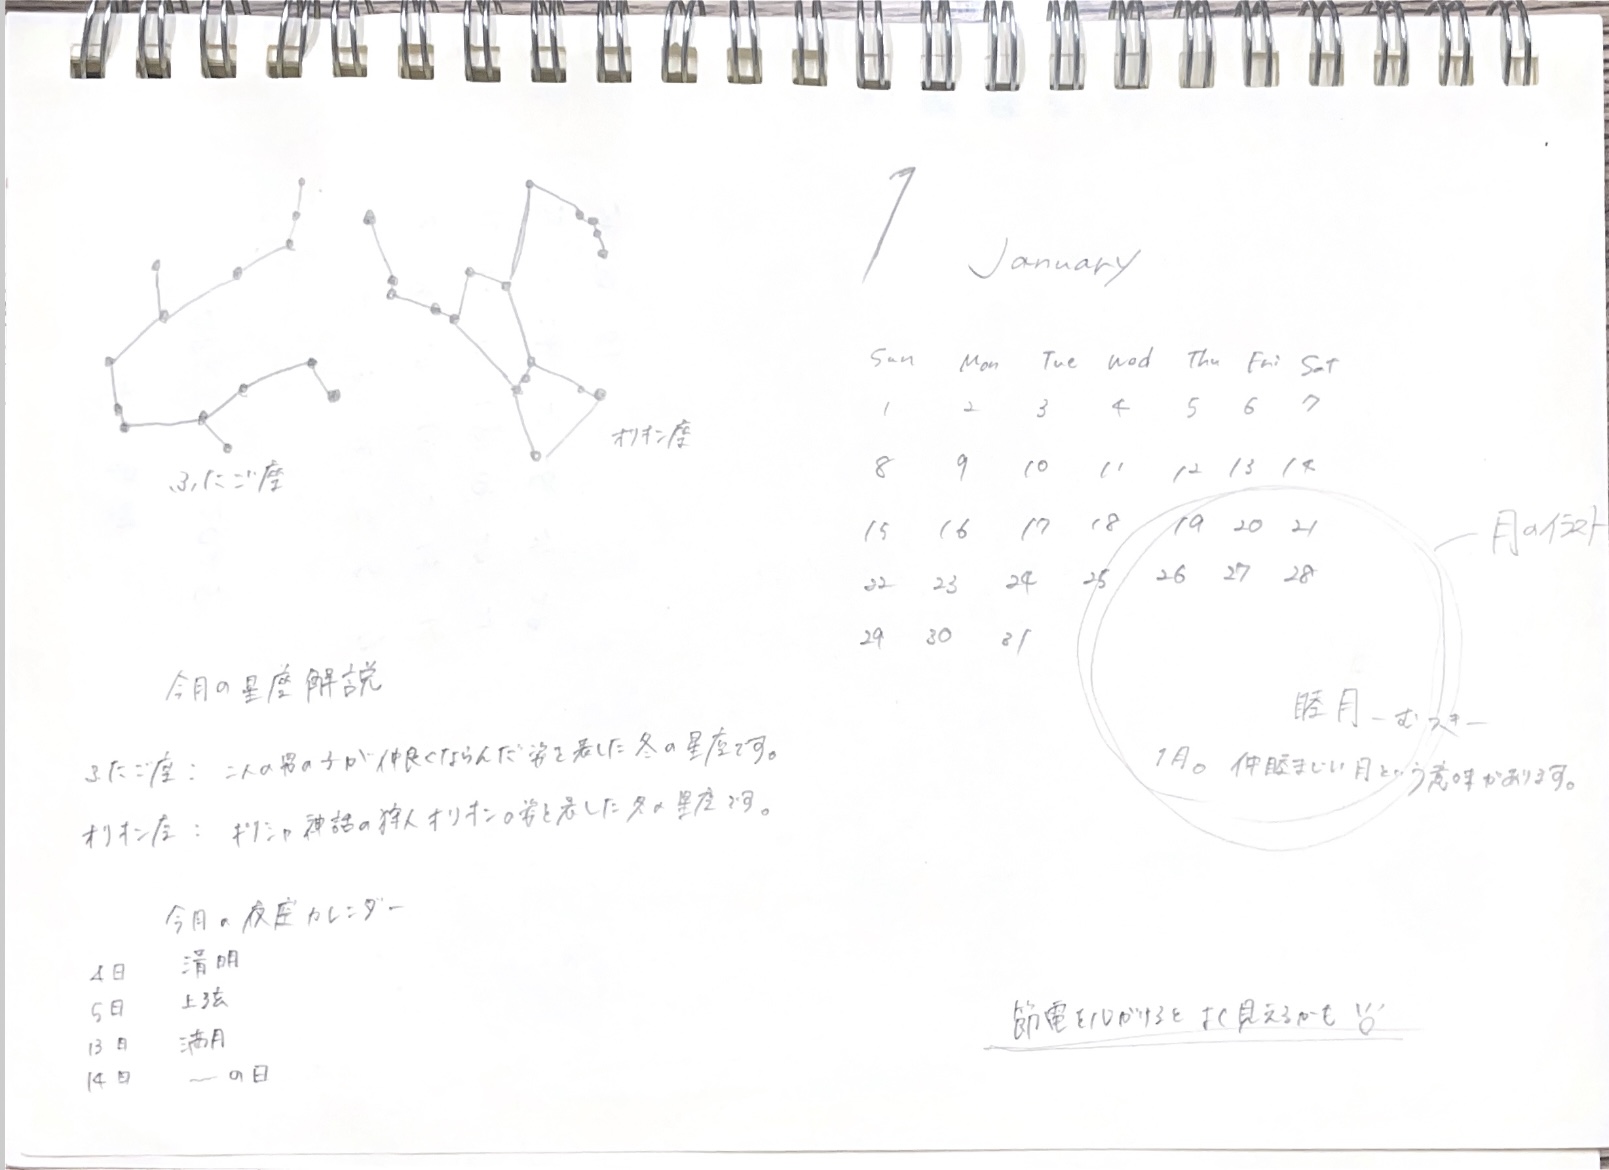 ふたご座
オリオン座
今月の星座解説
ふたご座： 二人の男の子が仲良くならんだ姿を表した冬の星座です。
オリオン座： ギリシャ神話の狩人オリオンの姿を表した冬の星座です。
今月の夜座カレンダー
4日 清明
5日 上弦
13日 満月
14日 〜の日
1
January
Sun Mon Tue Wed Thu Fri Sat
1 2 3 4 5 6 7
8 9 10 11 12 13 14
15 16 17 18 19 20 21
22 23 24 25 26 27 28
29 30 31
月のイラスト
睦月 -むつき-
1月。仲睦まじい月という意味があります。
節電を心がけるとよく見えるかも